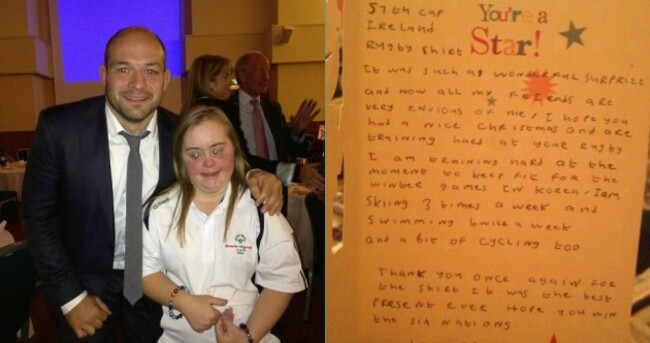 57th CAP
IRELAND
RUGBY SHIRT
You're a
Star!
It was such as wonderful surprize
and now all my friends are
very envious of me, I hope you
had a nice christmas and are
training hard at your rugby
I am training hard at the
moment to keep fit for the
winter games in Korea, I am
skiing 3 times a week and
swimming twice a week
and a bit of cycling too
Thank you once again for
the shirt It was the best
present ever hope you win
the six nations